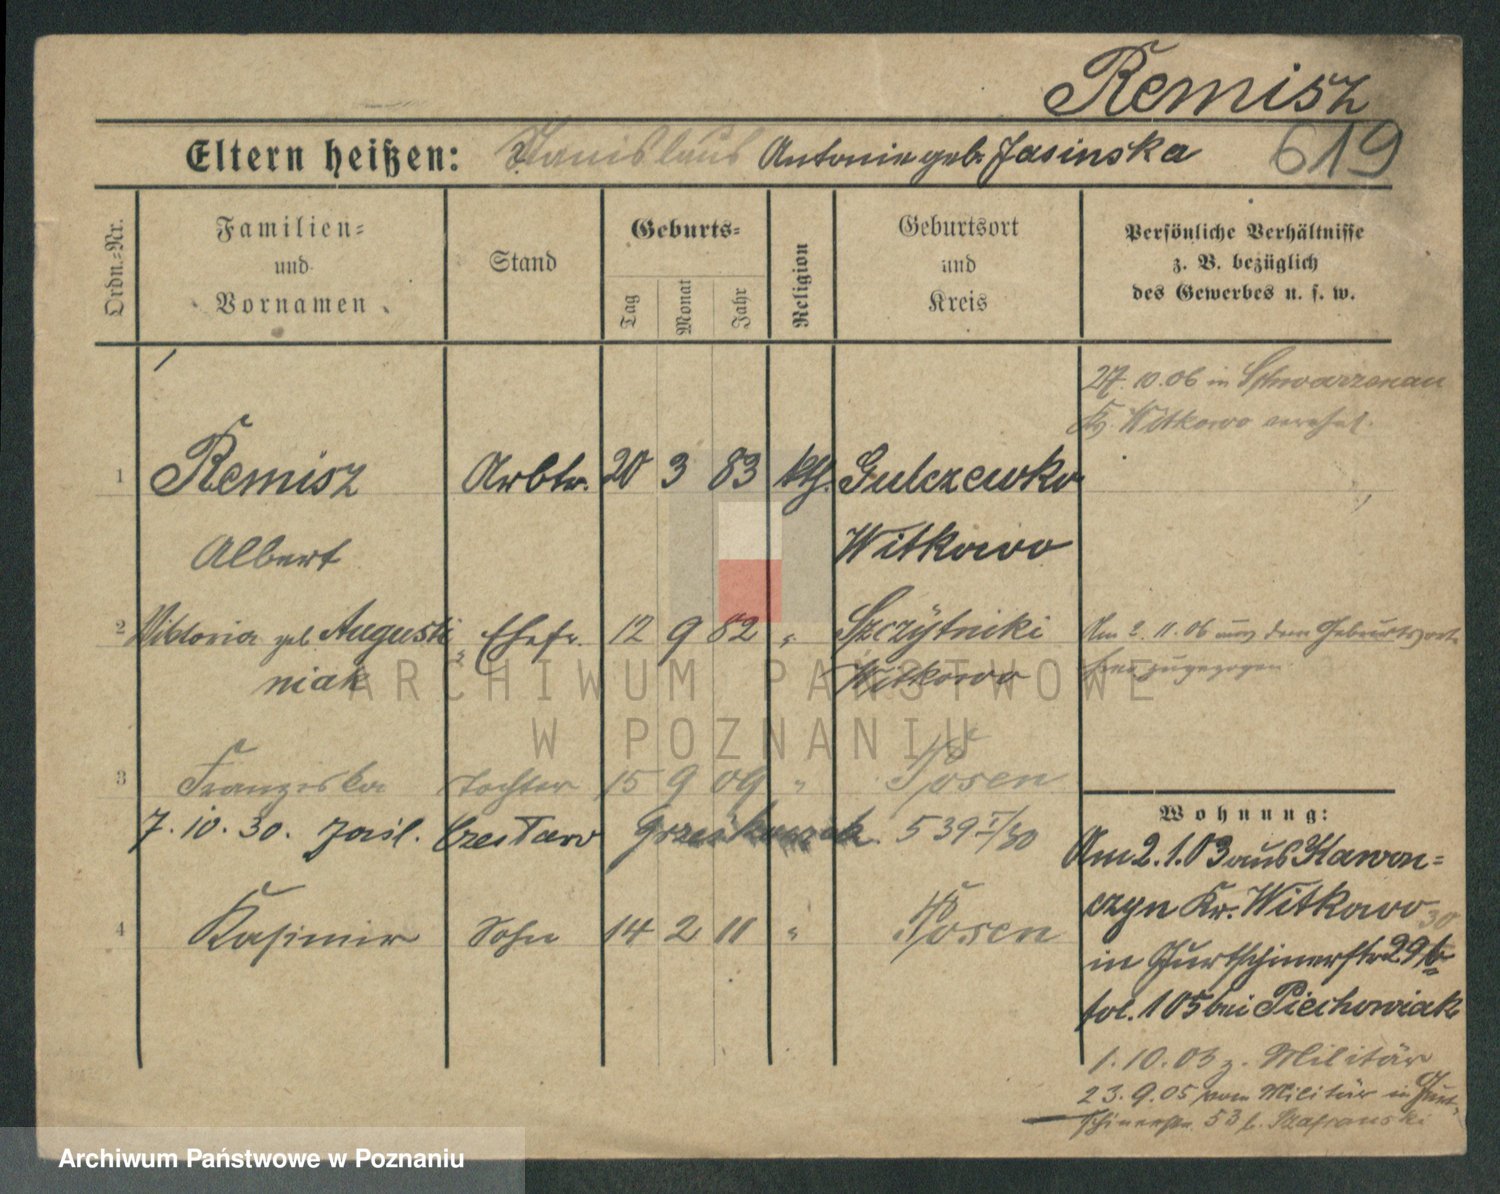 Remisz
619
Eltern heißen: Stanislaus Antonie geb. Jasinska
Ordn.-Nr.
Familien-
und
Vornamen
Stand
Geburts-
Tag
Monat
Jahr
Religion
Geburtsort
und
Kreis
Persönliche Verhältnisse
z. B. bezüglich
des Gewerbes u. s. w.
27. 10. 06 in Schwarzenau
Kr. Witkowo verehel.
1 Remisz Arbtr. 20 3 83 kth. Gulczewko
Albert Witkowo
2 Viktoria geb. Augusti Ehefr. 12 9 82 " Szczytniki
niak Witkowo
Am 2. 11. 06 aus dem Geburtsort
zugezogen
3 Franziska Tochter 15 9 09 " Posen
7. 10. 30. zaśl. Czesław Grześkowiak 539 I/30
4 Kasimir Sohn 14 2 11 " Posen
Wohnung:
Am 2. 1. 03 aus Kawon-
czyn Kr. Witkowo
30
in Jurtschinerstr. 29b
fol. 105 bei Piechowiak
1. 10. 03 z. Militär
23. 9. 05 vom Militär in Jurt-
schinerstr. 53 b. Szafranski
ARCHIWUM PAŃSTWOWE
W POZNANIU
Archiwum Państwowe w Poznaniu